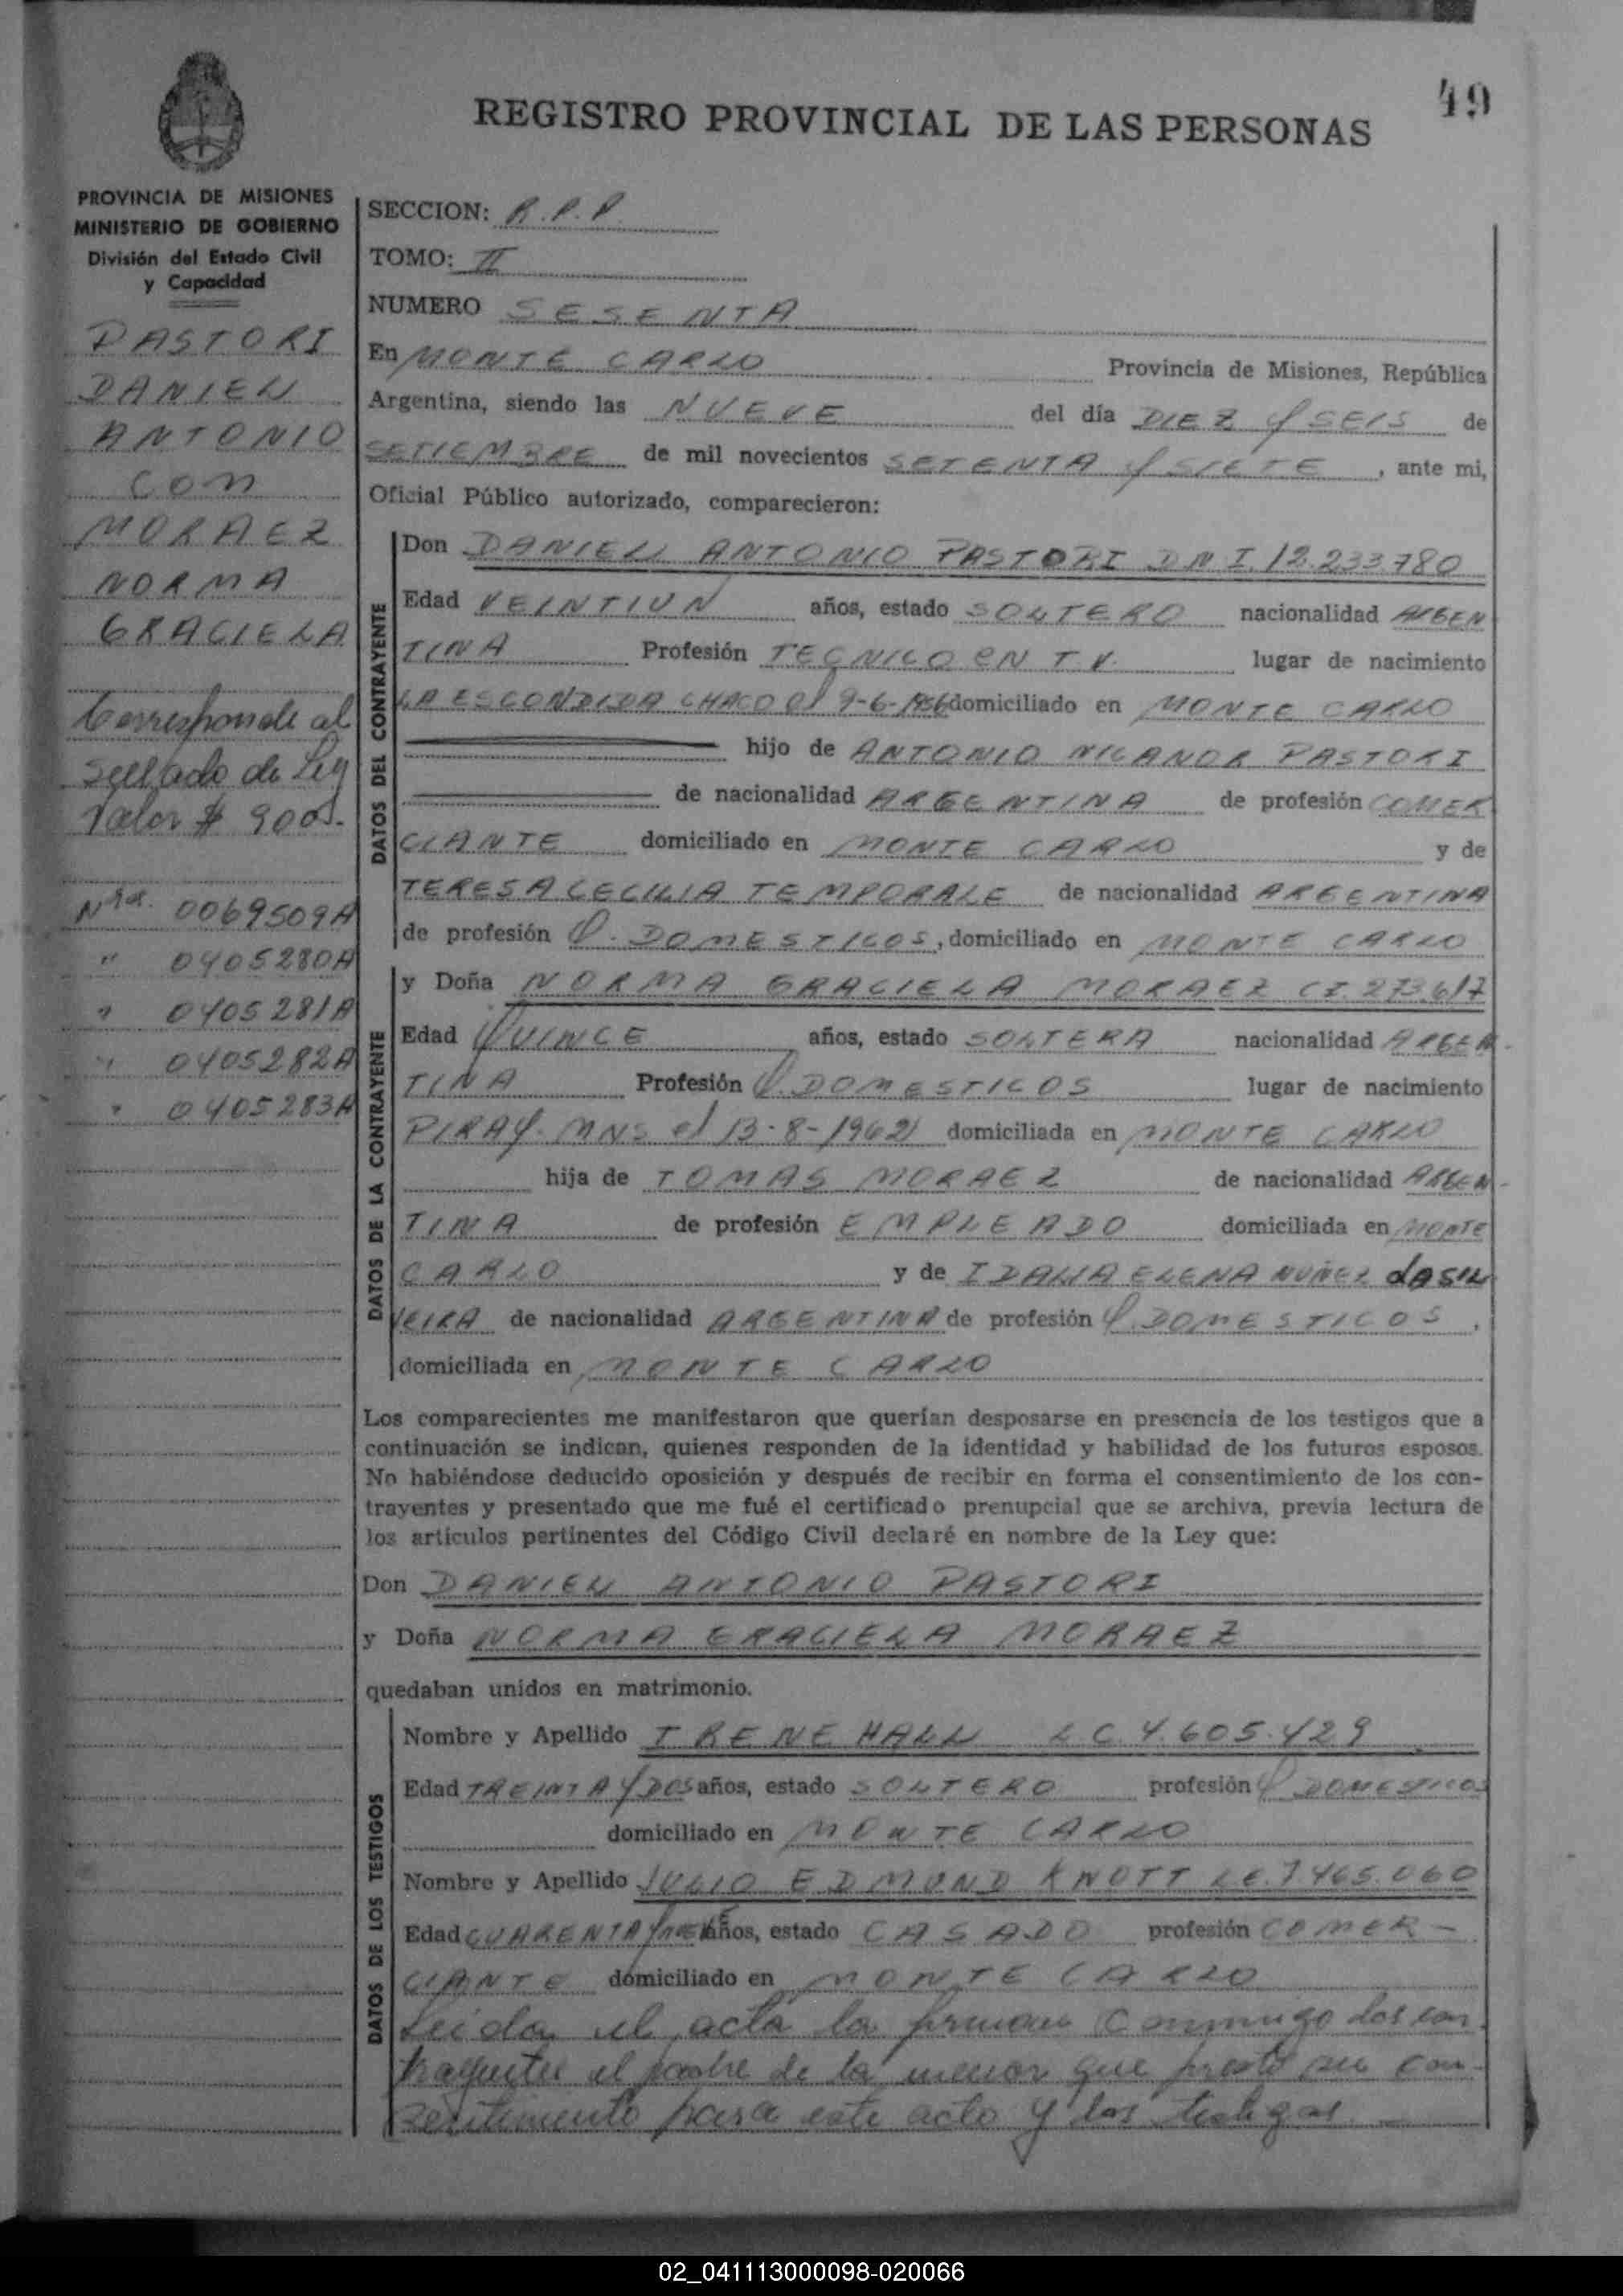 49
REGISTRO PROVINCIAL DE LAS PERSONAS
PROVINCIA DE MISIONES
MINISTERIO DE GOBIERNO
División del Estado Civil
y Capacidad
PASTORI
DANIEL
ANTONIO
CON
MORAEZ
NORMA
GRACIELA
Corresponde al
sellado de Ley
Valor $ 900.-
Nros. 0069509A
" 0405280A
" 0405281A
" 0405282A
" 0405283A
SECCION: R.P.P.
TOMO: II
NUMERO SESENTA
En MONTE CARLO Provincia de Misiones, República
Argentina, siendo las NUEVE del día DIEZ Y SEIS de
SETIEMBRE de mil novecientos SETENTA Y SIETE, ante mi,
Oficial Público autorizado, comparecieron:
DATOS DEL CONTRAYENTE
Don DANIEL ANTONIO PASTORI DNI. 12.233.780
Edad VEINTIUN años, estado SOLTERO nacionalidad ARGEN
TINA Profesión TECNICO EN T.V. lugar de nacimiento
LA ESCONDIDA CHACO el 9-6-1956 domiciliado en MONTE CARLO
hijo de ANTONIO NICANOR PASTORI
de nacionalidad ARGENTINA de profesión COMER
CIANTE domiciliado en MONTE CARLO y de
TERESA CECILIA TEMPORALE de nacionalidad ARGENTINA
de profesión Q. DOMESTICOS, domiciliado en MONTE CARLO
DATOS DE LA CONTRAYENTE
y Doña NORMA GRACIELA MORAEZ CI. 273.617
Edad QUINCE años, estado SOLTERA nacionalidad ARGEN-
TINA Profesión Q. DOMESTICOS lugar de nacimiento
PIRAY-MNS el 13-8-1962 domiciliada en MONTE CARLO
hija de TOMAS MORAEZ de nacionalidad ARGEN-
TINA de profesión EMPLEADO domiciliada en MONTE
CARLO y de IDALIA ELENA NUÑEZ DASIL
VEIRA de nacionalidad ARGENTINA de profesión Q. DOMESTICOS,
domiciliada en MONTE CARLO
Los comparecientes me manifestaron que querían desposarse en presencia de los testigos que a
continuación se indican, quienes responden de la identidad y habilidad de los futuros esposos.
No habiéndose deducido oposición y después de recibir en forma el consentimiento de los con-
trayentes y presentado que me fué el certificado prenupcial que se archiva, previa lectura de
los artículos pertinentes del Código Civil declaré en nombre de la Ley que:
Don DANIEL ANTONIO PASTORI
y Doña NORMA GRACIELA MORAEZ
quedaban unidos en matrimonio.
DATOS DE LOS TESTIGOS
Nombre y Apellido IRENE HALL LC 4.605.429
Edad TREINTA Y DOS años, estado SOLTERO profesión Q DOMESTICOS
domiciliado en MONTE CARLO
Nombre y Apellido JULIO EDMUND KNOTT LE. 7.465.060
Edad CUARENTA Y años, estado CASADO profesión COMER-
CIANTE domiciliado en MONTE CARLO
Leida el acta la firman conmigo los con
trayentes el padre de la menor que presta su con-
sentimiento para este acto y los testigos.
02_041113000098-020066